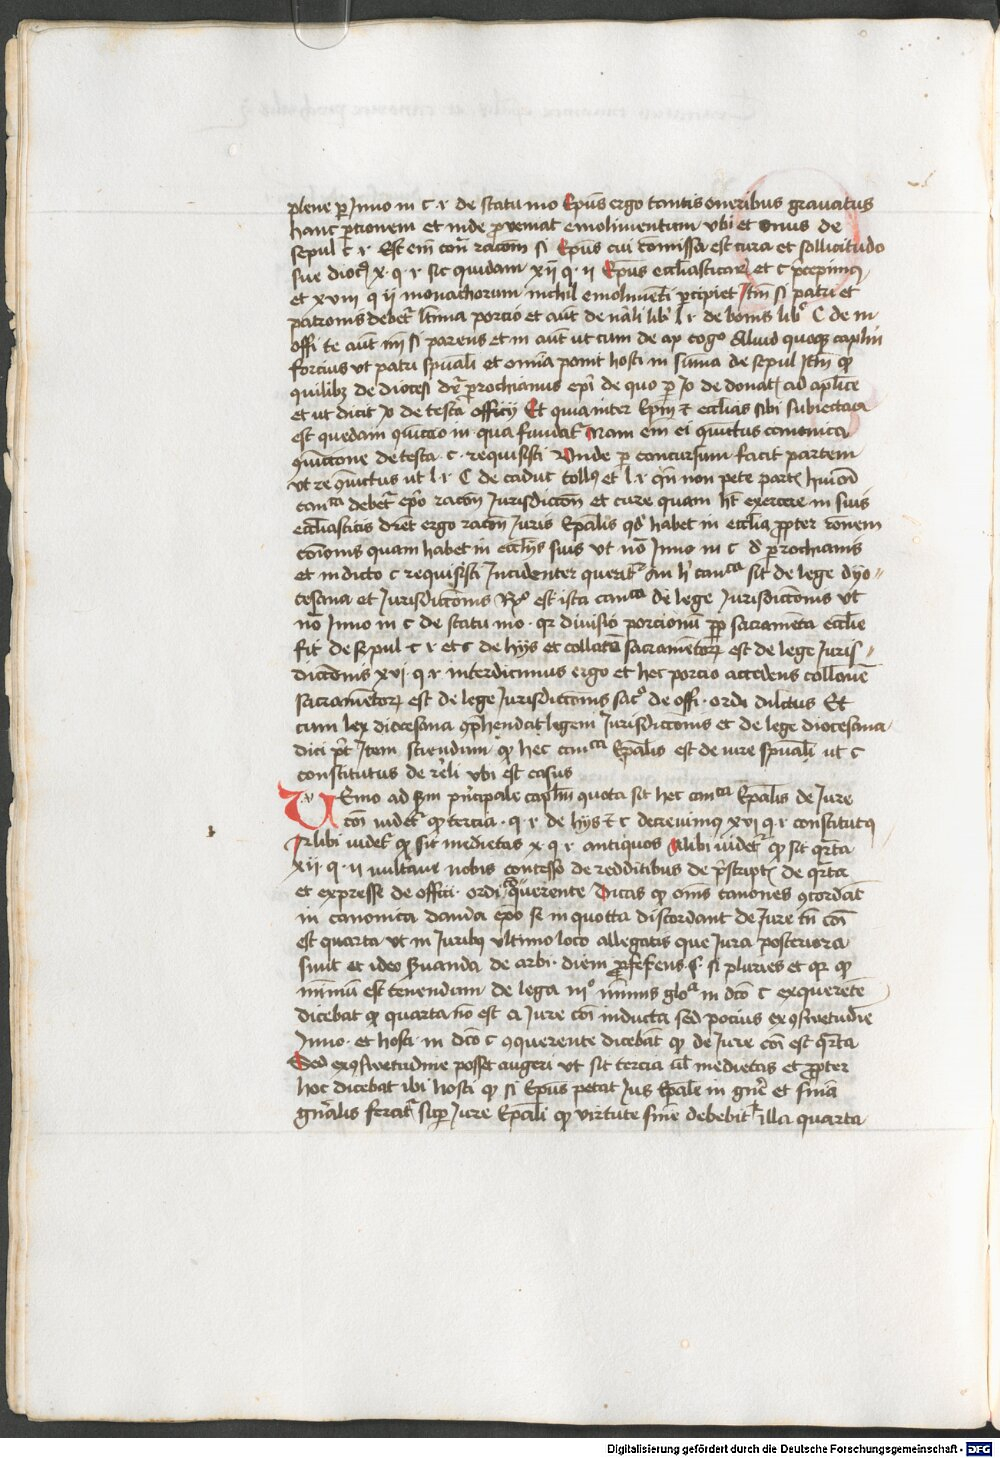 plene per Inno in c. 1. de statu mo Epūs ergo tantis oneribus grauatus
hanc p̄ctionem et inde proueniat emolimentum vbi et onus de
sepul c. 1. Est em̄ con̄ racom̄ si Epūs cui com̄issa est cura et sollicitudo
sue dioc x. q. 1 sic quidam xii q. ii Epūs eccl̄iasticaꝝ et c p̄cepimus
et xviii q ii monachorum nichil emolimēti p̄cipiet Itm̄ si patri et
patronis debet̄ l̄tima porcio et aūt de nāli lib' l. 1. de bonis lib' C de in
offi te aūt si parens et in aūt ut cum de ap cogo Aliud quoqꝫ caplm̄
forcius vt patri sp̄uali et om̄ia ponit hosti in sum̄a de sepul Itm̄ qꝫ
quilibꝫ de diocesi dr̄ p̄rochianus ep̄i de quo per Jo de donat cū ap̄lice
et ut dicit Jo de testa officij Et quia inter Ep̄m et eccl̄ias sibi subiectas
est quedam in qua fundat̄ Nam em̄ ei canonica
de testa. c. requisisti Vnde p concursum facit partem
ut l. 1. C de caduc tollꝰ et l. 1. non pete parte
debet̄ ep̄o racōn Jurisdictōn et cure quam ht̄ exercere in suis
ergo racōn Juris Ep̄alis qd' habet in eccl̄ia propter
quam habet in eccl̄ijs suis vt nō Inno in c de p̄rochianis
et in dicto c requisisti Incidenter querit̄ An h' can̄ca sit de lege dyo⸗
cesana et Jurisdictōnis Rº est ista can̄ca de lege Jurisdictōnis vt
nō Inno in c de statu mo. qr diuisio porcionū pp̄ sacramēta eccl̄ie
fit de sepul c 1 et c de hijs et collatō sacramētoꝝ est de lege Juris⸗
dictōnis xvi. q. 1 interdicimus ergo et hec porcio accedens
sacramētoꝝ est de lege Jurisdictōnis de offi. ordi dilectus Et
cum lex diocesana cōp̄hendat legem Jurisdictōnis et de lege diocesana
dici pt̄ Item sciendum qꝫ hec can̄ca Ep̄alis est de iure sp̄uali ut c
constitutus de reli vbi est casus
VEnio ad principale caplm̄ quota sit hec can̄ca Ep̄alis de Jure
con̄ videt̄ qꝫ tercia. q. 1. de hijs et c decreuimꝰ xvi q 1 constitutꝰ
Alibi videt̄ qꝫ sit medietas x. q. 1. antiquos Alibi videt̄ qꝫ sit qr̄ta
xii q. ii nobis confesso de redditibus de p̄script de qr̄ta
et expresse de offici. ordi conquerente Dicas qꝫ om̄s canones cōcordāt
in canonica danda ep̄o se in quotta discordant de Jure tn̄ con̄
est quarta vt in Juribꝰ vltimo loco allegatis que Jura posteriora
sunt et ideo seruanda de arbi. diem proferens. §. si plures et qr qꝫ
minimū est tenendum de lega iiiº nimis gloª in dc̄o c conquerēte
dicebat qꝫ quarta nō est a Jure con̄ inducta sed pocius ex cōsuetudīe
Inno. et hosti in dc̄o c cōquerente dicebāt qꝫ de Jure con̄ est qr̄ta
Sed ex cōsuetudine posset augeri vt sit tercia ul̄ medietas et propter
hoc dicebat ibi hosti qꝫ si Epūs petat Jus Ep̄ale in gnr̄e et sn̄ia
gn̄ralis ferat̄ super Jure Ep̄ali qꝫ virtute sn̄ie debebit̄ illa quarta
Digitalisierung gefördert durch die Deutsche Forschungsgemeinschaft - DFG